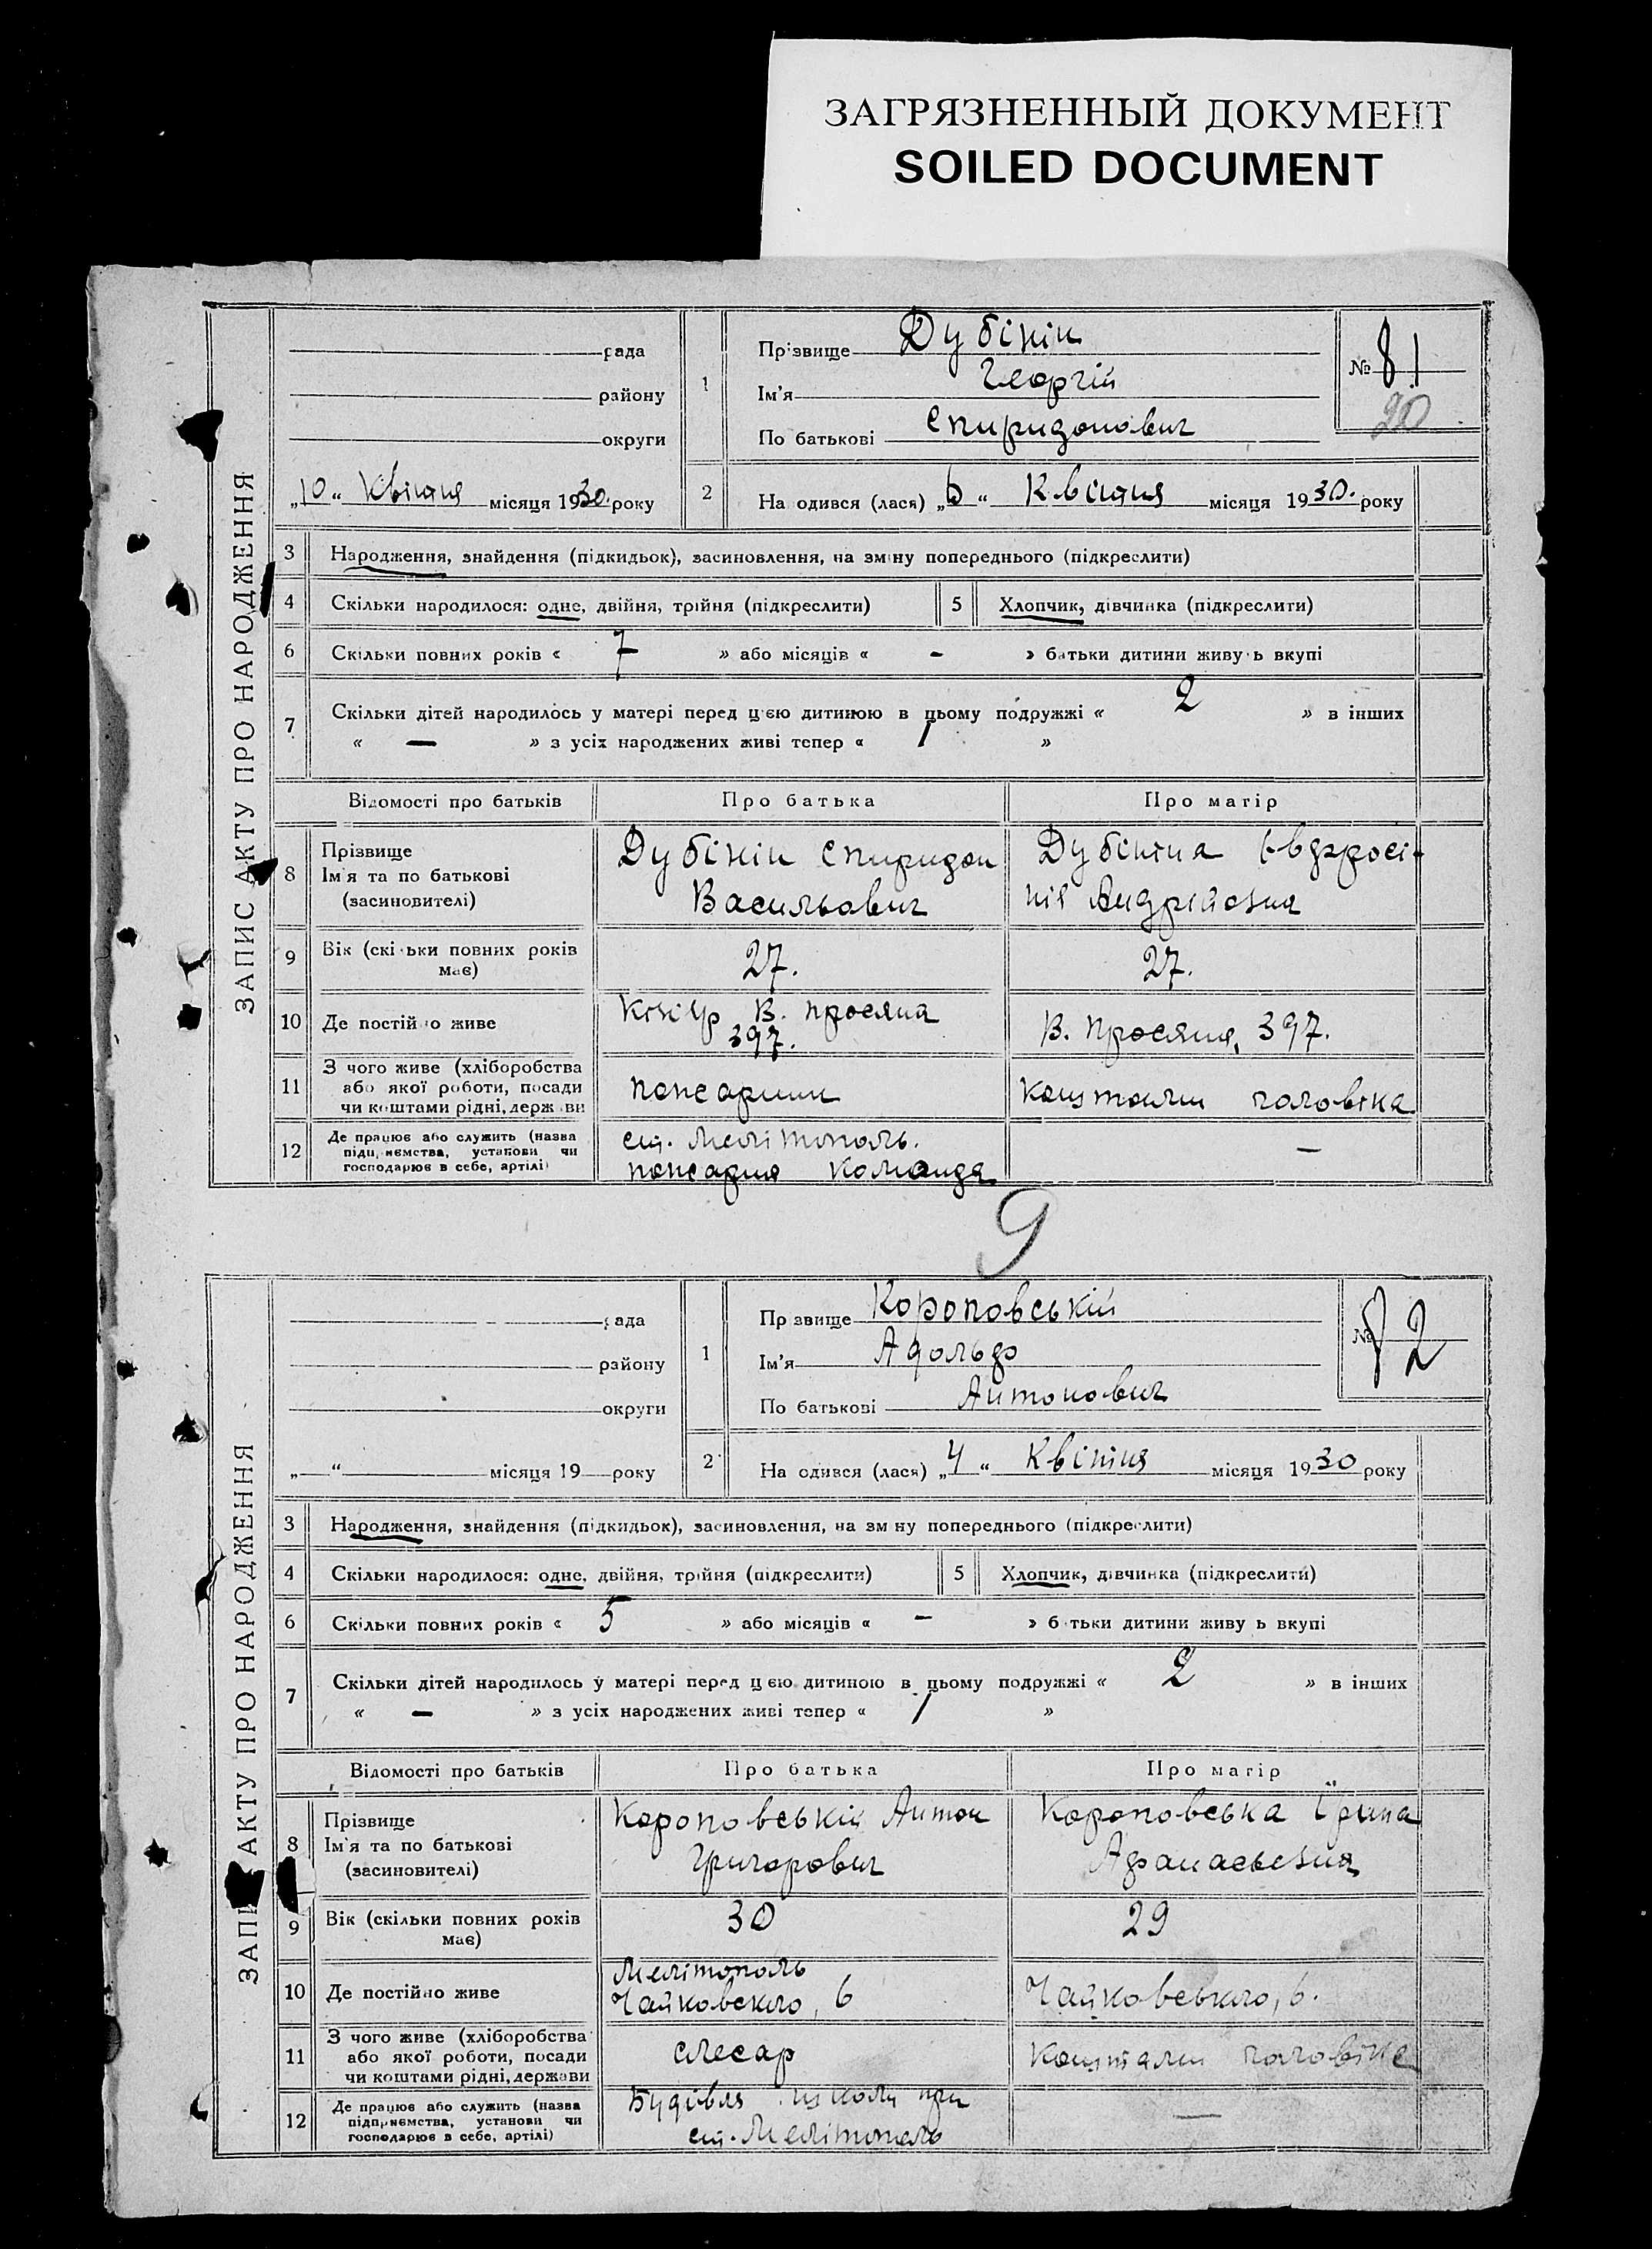 ЗАГРЯЗНЕННЫЙ ДОКУМЕНТ
SOILED DOCUMENT
ЗАПИС АКТУ ПРО НАРОДЖЕННЯ
рада
району
округи
„10“ Квітня місяця 1930. року
1
Прізвище Дубінін
Ім'я Георгій
По батькові Спиридонович
№ 81
20
2
На одився (лася) „6“ Квітня місяця 1930. року
3 Народження, знайдення (підкидьок), засиновлення, на зміну попереднього (підкреслити)
4 Скільки народилося: одне, двійня, трійня (підкреслити)
5 Хлопчик, дівчинка (підкреслити)
6 Скільки повних років « 7 » або місяців « - » батьки дитини живуть вкупі
7 Скільки дітей народилось у матері перед цією дитиною в цьому подружжі « 2 » в інших
« — » з усіх народжених живі тепер « 1 »
Відомості про батьків Про батька Про матір
8 Прізвище
Ім'я та по батькові
(засиновителі)
Дубінін Спиридон
Васильович
Дубініна Євдросі-
нія Андрійовна
9 Вік (скільки повних років
має)
27.
27.
10 Де постійно живе
В. Просяна
397.
В. Просяна, 397.
11 З чого живе (хліборобства
або якої роботи, посади
чи коштами рідні, держави
пожарник
Коштами чоловіка
12 Де працює або служить (назва
підприємства, установи чи
господарює в себе, артілі)
ст. Мелітополь.
пожарна команда
—
9
ЗАПИ АКТУ ПРО НАРОДЖЕННЯ
рада
району
округи
„ “ місяця 19 року
1
Пр звище Короповській
Ім'я Адольф
По батькові Антонович
№ 82
2
На одився (лася) „4“ Квітня місяця 1930 року
3 Народження, знайдення (підкидьок), засиновлення, на зм ну попереднього (підкреслити)
4 Скільки народилося: одне, двійня, трійня (підкреслити)
5 Хлопчик, дівчинка (підкреслити)
6 Скільки повних років « 5 » або місяців « - » б тьки дитини живу ь вкупі
7 Скільки дітей народилось у матері перед цією дитиною в цьому подружжі « 2 » в інших
« — » з усіх народжених живі тепер « 1 »
Відомості про батьків Про батька Про матір
8 Прізвище
Ім'я та по батькові
(засиновителі)
Короповській Антон
Григорович
Короповська Їрина
Афанасьєвна
9 Вік (скільки повних років
має)
30
29
10 Де постійно живе
Мелітополь
Чайковського, 6
Чайковського, 6.
11 З чого живе (хліборобства
або якої роботи, посади
чи коштами рідні, держави
слесар
Коштами чоловіка
12 Де працює або служить (назва
підприємства, установи чи
господарює в себе, артілі)
Будівля школи при
ст. Мелітополь
—